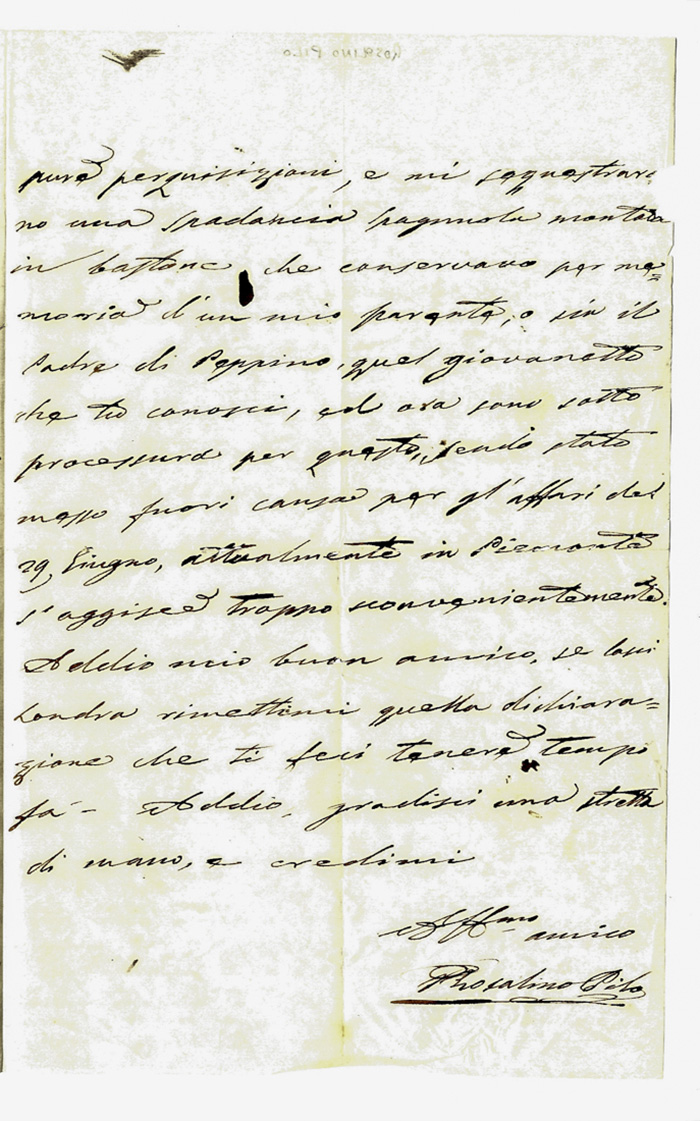 ROSALINO PILO
pure perquisizioni, e mi sequestraro
no una spadancia spagnuola montata
in bastone che conservavo per me=
moria d'un mio parente, o sia il
Padre di Peppino, quel giovanetto
che tu conosci, ed ora sono sotto
processura per questo, sendo stato
messo fuori causa per gl'affari del
29 Giugno, attualmente in Piemonte
s'aggisce troppo sconvenientemente.
Addio mio buon amico, se lasci
Londra rimettimi quella dichiara=
zione che ti feci tenere tempo
fa - Addio, gradisci una stretta
di mano, e credimi
Affmo
amico
Rhosalino Pilo